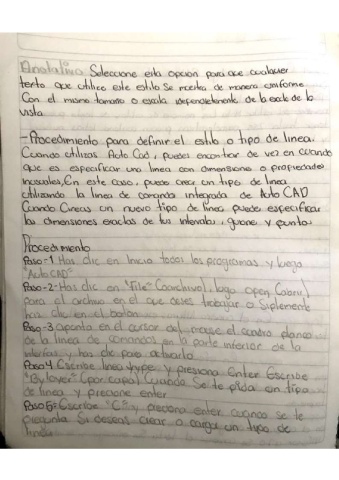 Anotativo Seleccione esta opcion para que cualquier
texto que utilice este estilo Se muestra de manera uniforme
Con el mismo tamaño o escala de la escala de la
vista
- Procedimiento para definir el estilo o tipo de linea.
Cuando utilizas Auto Cad, puedes encontrar de vez en cuando
que es especificar una linea con dimensiones o propiedades
inusuales, En este caso, puede crear un tipo de linea
utilizando la linea de comando integrada de Auto CAD
Cuando Crneas un nuevo tipo de linea puedes especificar
las dimensiones exactas de tus intervalos, guiones y puntos
Procedimiento
Paso-1 Has clic en Inicio todos los programas y luego
"Auto CAD"
Paso-2-Has clic en "File" luego open (abrir)
para el archivo en el que deses trabajar o Siplemente
has clic en el boton
Paso-3 apunta en el cursor del mouse el cuadro blanco
de la linea de comandos en la parte inferior de la
interfas y has clic para activarlo
Paso 4 Escribe linea type y presiona Enter Escribe
"Bylayer" (por capa) Cuando Se te pida un tipo
de linea y precione enter
Paso 5= Escribe "C" y preciona enter cuando se te
pregunta Si deseas crear o cargar un tipo de
linea